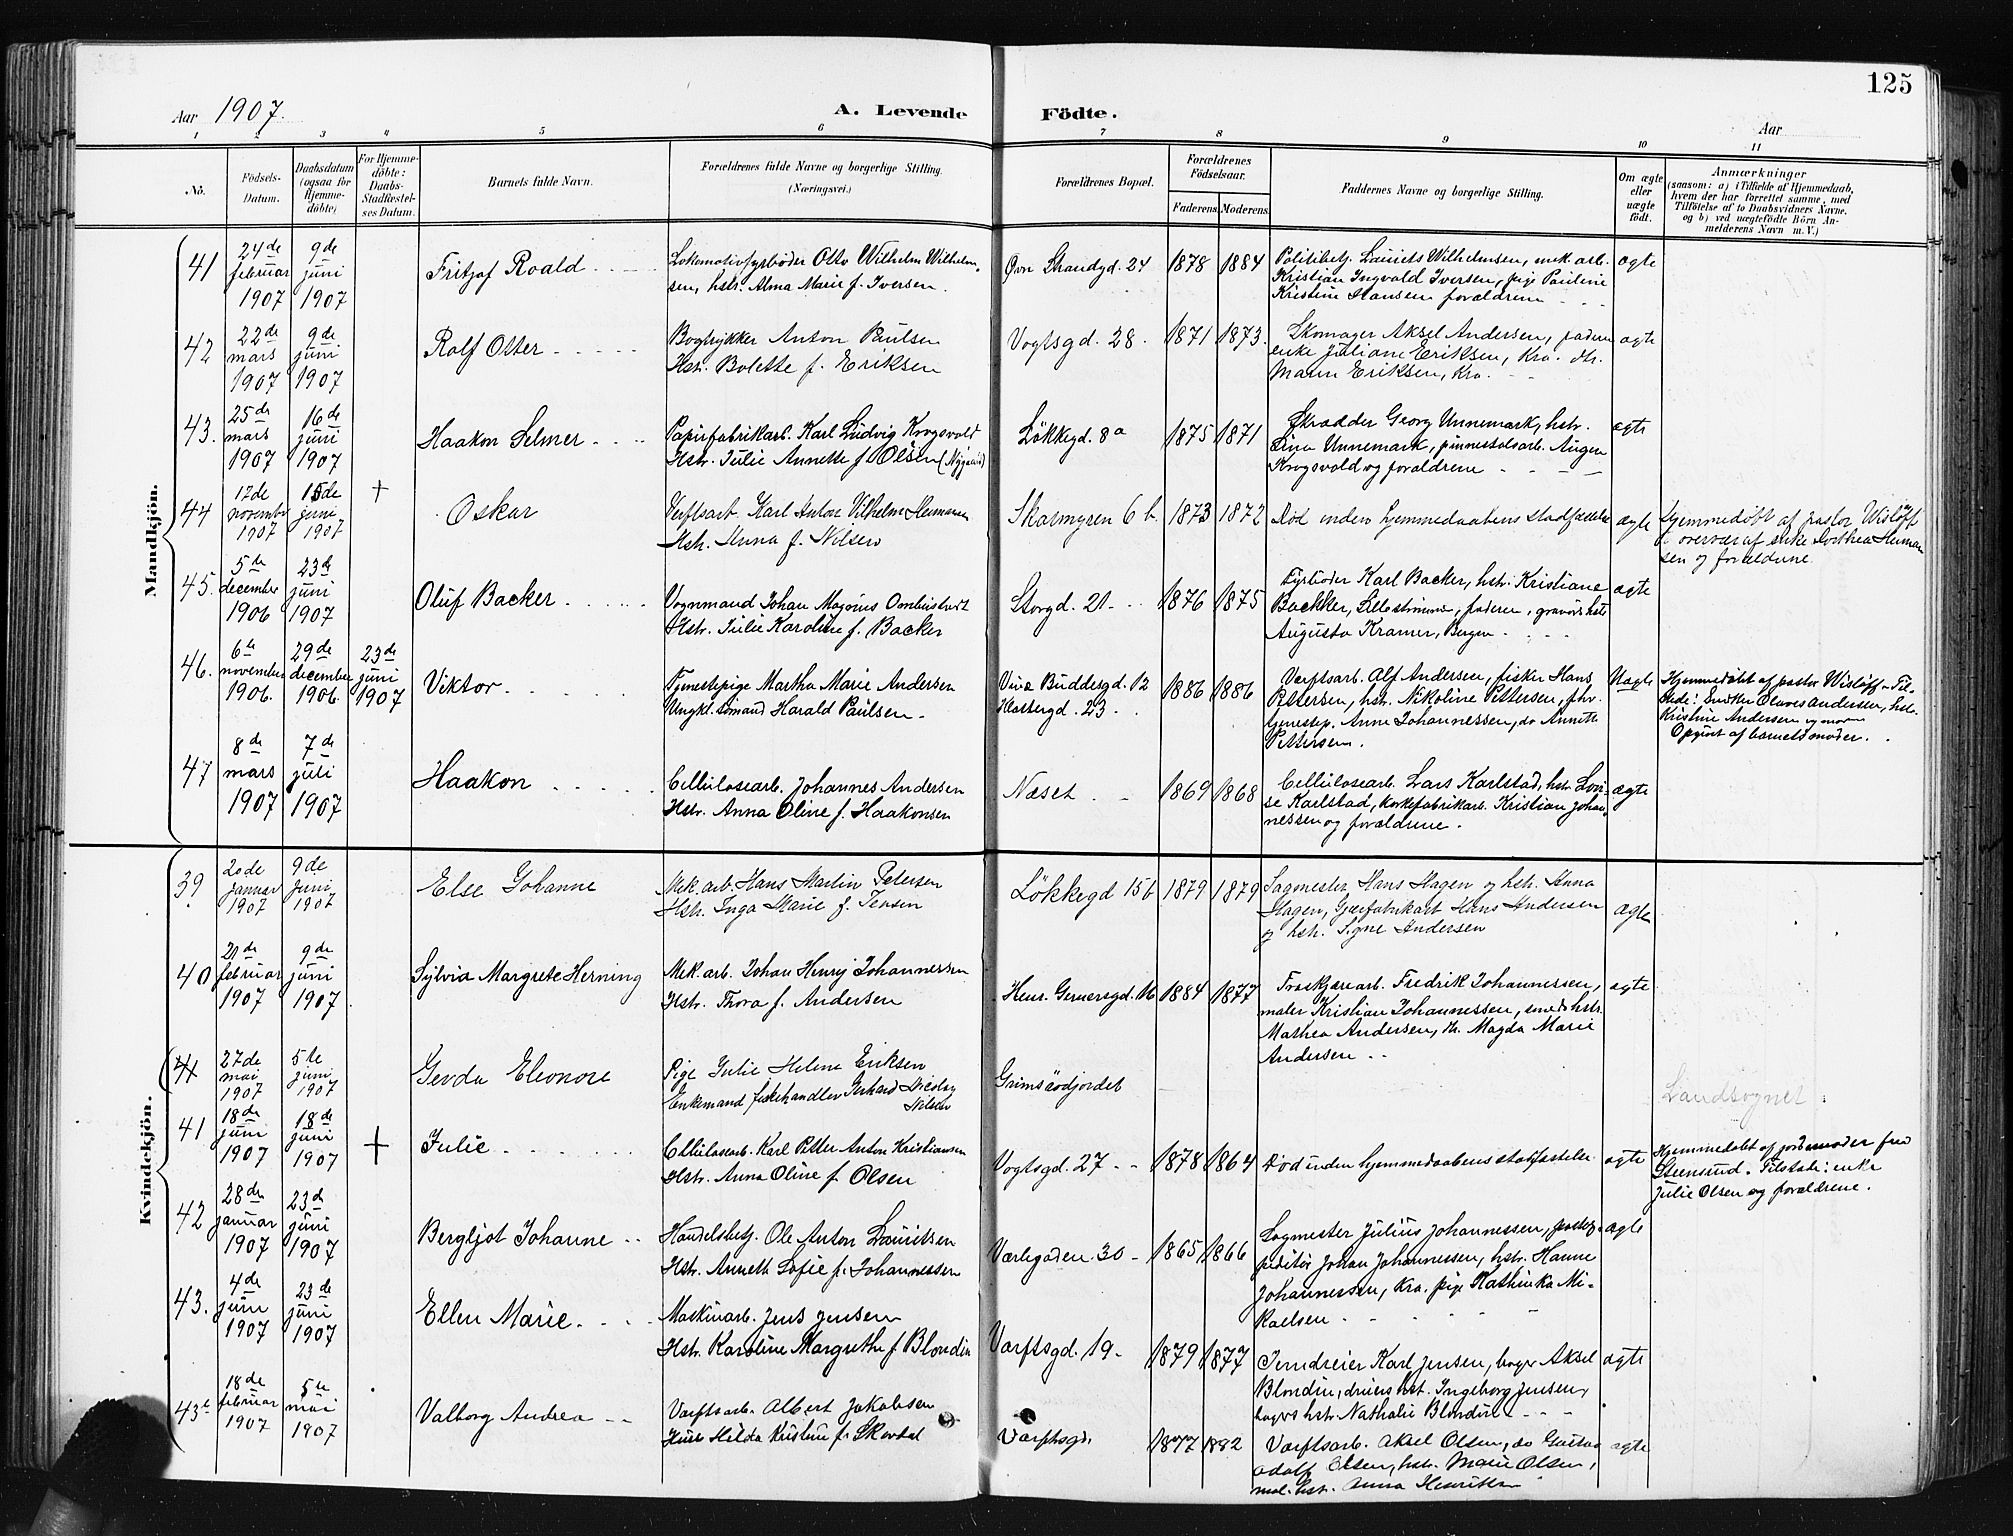 125
Aar 1907.
A. Levende Födte.
Aar
1 2 3 4 5 6 7 8 9 10 11
No.
Födsels-
Datum.
Daabsdatum
(ogsaa for
Hjemme-
döbte)
For Hjemme-
döbte:
Daabs-
Stadfæstel-
ses Datum.
Barnets fulde Navn.
Forældrenes fulde Navne og borgerlige Stilling.
(Næringsvei.)
Forældrenes Bopæl.
Forældrenes
Födselsaar.
Faderens. Moderens.
Faddernes Navne og borgerlige Stilling.
Om ægte
eller
uægte
födt.
Anmærkninger
(saasom: a) i Tilfælde af Hjemmedaab,
hvem der har forrettet samme, med
Tilföielse af to Daabsvidners Navne.
og b) ved uægtefödte Börn An-
melderens Navn m. V.)
Mandkjön.
41
24de
februar
1907
9de
juni
1907
Fritjof Roald
Lokomotivfyrböder Otto Wilhelm Wilhelm-
sen, hstr. Alma Marie f. Iversen.
Övn Strandgd. 24
1878 1884
Politibetj. Laurits Wilhelmsen, mek arb.
Kristian Ingvald Iversen, pige Pauline
Kristine Hansen forældrene
ægte
42
22de
mars
1907
9de
juni
1907
Rolf Otter
Bogtrykker Anton Paulsen
Hstr. Bolette f. Eriksen
Vogtsgd. 28.
1871 1873.
Skomager Aksel Andersen, faderen
enke Juliane Eriksen, Kra. dtr.
Marin Eriksen, Kra.
ægte
43.
25de
mars
1907
16de
juni
1907
Haakon Selmer
Papirfabrikarb. Karl Ludvig Krogsvold
Hstr. Julie Annette f. Olsen (Nygaard)
Løkkegd. 8a
1875 1871
Skrædder Georg Unnemark, hstr.
Lina Unnemark, pinnestolsarb. August
Krogsvold og forældrene
ægte
44
17de
november
1907
15de
juni
1907
+
Oskar
Verftsarb. Karl Anton Vilhelm Hermansen
Hstr. Anna f. Nilsen
Skarmyren 6 b.
1873 1872
Död inden hjemmedaabens stadfæstelse
ægte
Hjemmedøbt af pastor Wisløff
i overvær af enke Dorthea Herman
sen og forældrene.
45.
5te
december
1906
23de
juni
1907
Oluf Backer
Vognmand Johan Magnus Ombustvedt
Hstr. Julie Karoline f. Backer
Storgd. 21
1876 1875
Fyrböder Karl Backer, hstr. Kristiane
Backker, Lillestrømmen, faderen, gravörs hstr
Augusta Kramer, Bergen
ægte
46.
6te
november
1906.
29de
december
1906.
23de
juni
1907
Viktor.
Tjenestepige Martha Marie Andersen
Ungkl. sömand Harald Paulsen.
Vivi Buddersgd. 12
Hasbergd. 23.
1886 1886
Værftsarb. Alf Andersen, fisker Hans
Pettersen, hstr. Nikoline Pettersen, fhv.
tjenestep. Anne Johannessen, do Annette
Pettersen.
Uægte
Hjemmedøbt af pastor Wisløff. Til-
stede: Snedker Olaves Andersen, hstr.
Kristine Andersen og mor
Opgivet af barnets moder.
47
8de
mars
1907
7de
juli
1907
Haakon
Cellulosearb. Johannes Andersen
Hstr. Anna Oline f. Haakonsen
Næset
1869 1868
Cellulosearb. Lars Karlstad, hstr. Lovi-
se Karlstad, korkefabrikarb. Kristian Johan-
nessen og forældrene.
ægte
Kvindekjön.
39
20de
januar
1907
9de
juni
1907
Else Johanne
Mek. arb. Hans Martin Petersen
Hstr. Inga Marie f. Jensen
Løkkegd 15b
1879 1879
Sagmester Hans Hagen og hstr. Anna
Hagen, Gjærfabrikarb Hans Andersen
og hstr. Signe Andersen
ægte
40
21de
februar
1907
9de
juni
1907
Sylvia Margrete Herning
Mek. arb. Johan Henry Johannessen
Hstr. Thora f. Andersen
Henr. Gernersgd. 16
1884 1877
Træskjærearb. Fredrik Johannessen,
maler Kristian Johannessen, smeds hstr.
Mathea Andersen, do. Magda Marie
Andersen
ægte
41
27de
mai
1907
5te
juni
1907
Gerda Eleonore
Pige Julie Helene Eriksen
Enkemand fiskehandler Gerhard Nicolay
Nilsen
Grimsrødjordet
Landsognet.
41
18de
juni
1907
18de
juni
1907
+
Julie
Cellulosearb. Karl Petter Anton Kristiansen
Hstr. Anna Oline f. Olsen
Vogtsgd. 27
1878 1864
Död inden hjemmedaabens stadfæstelse
ægte
Hjemmedøbt af jordemoder fru
Steensrud. Tilstede: enke
Julie Olsen og forældrene.
42
28de
januar
1907
23d
juni
1907
Bergljot Johanne
Handelsbetj. Ole Anton Lauritsen
Hstr. Annette Sofie f. Johannessen
Værlegaden 30
1865 1866
Sogmester Julius Johannessen, postex-
peditør Johan Johannessen, hstr. Hanne
Johannessen, Kra. pige Kathinka Mi-
kaelsen
ægte
43.
4de
juni
1907
23de
juni
1907
Ellen Marie
Maskinarb. Jens Jensen
Hstr. Karoline Margrethe f Blondin
Værftsgd. 19
1879 1877
Jerndreier Karl Jensen, bager Aksel
Blondin, dreiers hst. Ingeborg Jensen,
bagers hstr. Nathalie Blondin
ægte
43b
18de
februar
1907
5te
mai
1907
Valborg Andrea
Værftsarb. Albert Jakobsen
Hustr Hilda Kristine f. Skovdal
Værftsgd.
1877 1882
Værftsarb. Aksel Olsen, do Gustav
Adolf Olsen, hstr. Marie Olsen,
mal. hst. Anna Henriksen
ægte